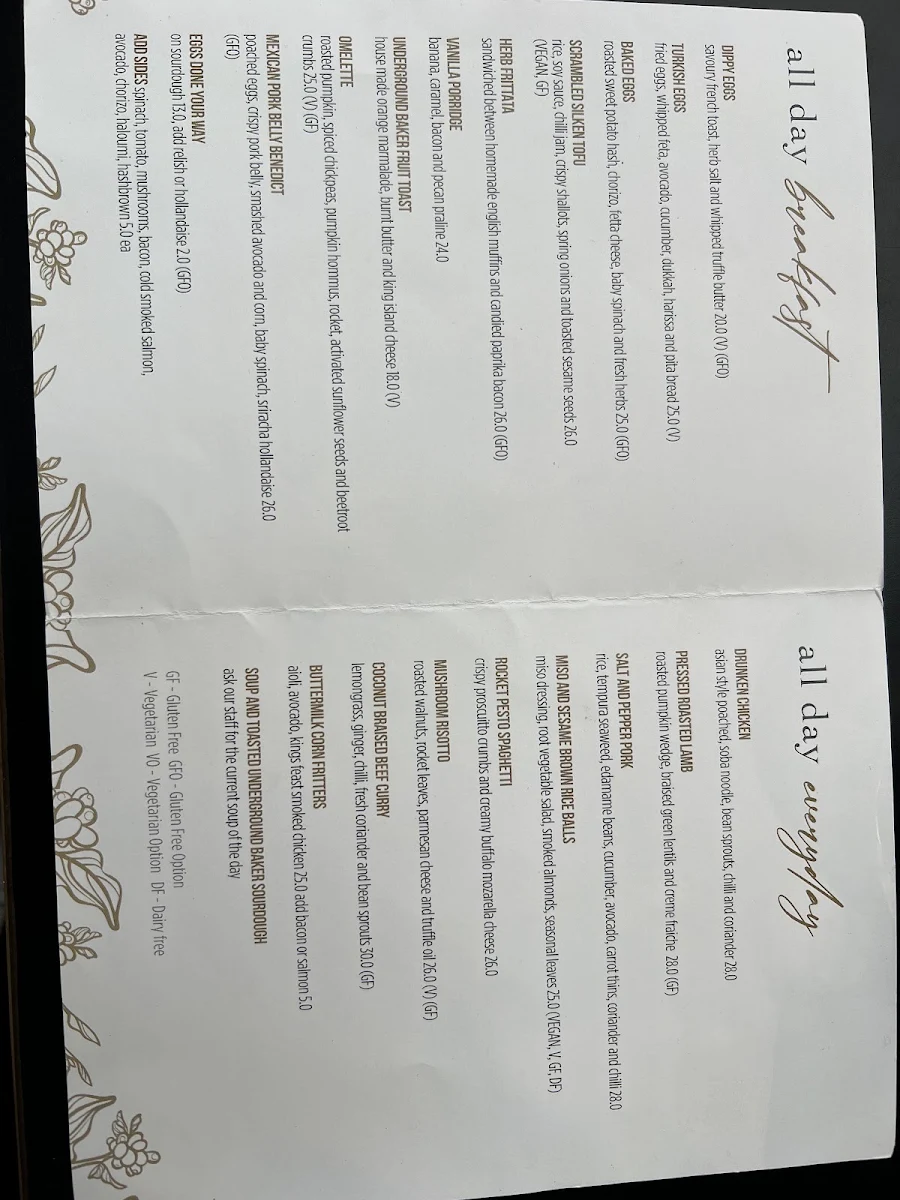 all day breakfast
DIPPY EGGS
savoury french toast, herb salt and whipped truffle butter 20.0 (V) (GFO)
TURKISH EGGS
fried eggs, whipped feta, avocado, cucumber, dukkah, harissa and pita bread 25.0 (V)
BAKED EGGS
roasted sweet potato hash, chorizo, fetta cheese, baby spinach and fresh herbs 25.0 (GFO)
SCRAMBLED SILKEN TOFU
rice, soy sauce, chilli jam, crispy shallots, spring onions and toasted sesame seeds 26.0
(VEGAN, GF)
HERB FRITTATA
sandwiched between homemade english muffins and candied paprika bacon 26.0 (GFO)
VANILLA PORRIDGE
banana, caramel, bacon and pecan praline 24.0
UNDERGROUND BAKER FRUIT TOAST
house made orange marmalade, burnt butter and king island cheese 18.0 (V)
OMELETTE
roasted pumpkin, spiced chickpeas, pumpkin hommus, rocket, activated sunflower seeds and beetroot
crumbs 25.0 (V) (GF)
MEXICAN PORK BELLY BENEDICT
poached eggs, crispy pork belly, smashed avocado and corn, baby spinach, sriracha hollandaise 26.0
(GFO)
EGGS DONE YOUR WAY
on sourdough 13.0, add relish or hollandaise 2.0 (GFO)
ADD SIDES spinach, tomato, mushrooms, bacon, cold smoked salmon,
avocado, chorizo, haloumi, hashbrown 5.0 ea
all day everyday
DRUNKEN CHICKEN
asian style poached, soba noodle, bean sprouts, chilli and coriander 28.0
PRESSED ROASTED LAMB
roasted pumpkin wedge, braised green lentils and creme fraiche 28.0 (GF)
SALT AND PEPPER PORK
rice, tempura seaweed, edamame beans, cucumber, avocado, carrot thins, coriander and chilli 28.0
MISO AND SESAME BROWN RICE BALLS
miso dressing, root vegetable salad, smoked almonds, seasonal leaves 25.0 (VEGAN, V, GF, DF)
ROCKET PESTO SPAGHETTI
crispy proscuitto crumbs and creamy buffalo mozarella cheese 26.0
MUSHROOM RISOTTO
roasted walnuts, rocket leaves, parmesan cheese and truffle oil 26.0 (V) (GF)
COCONUT BRAISED BEEF CURRY
lemongrass, ginger, chilli, fresh coriander and bean sprouts 30.0 (GF)
BUTTERMILK CORN FRITTERS
aioli, avocado, kings feast smoked chicken 25.0 add bacon or salmon 5.0
SOUP AND TOASTED UNDERGROUND BAKER SOURDOUGH
ask our staff for the current soup of the day
GF - Gluten Free GFO - Gluten Free Option
V - Vegetarian VO - Vegetarian Option DF - Dairy free